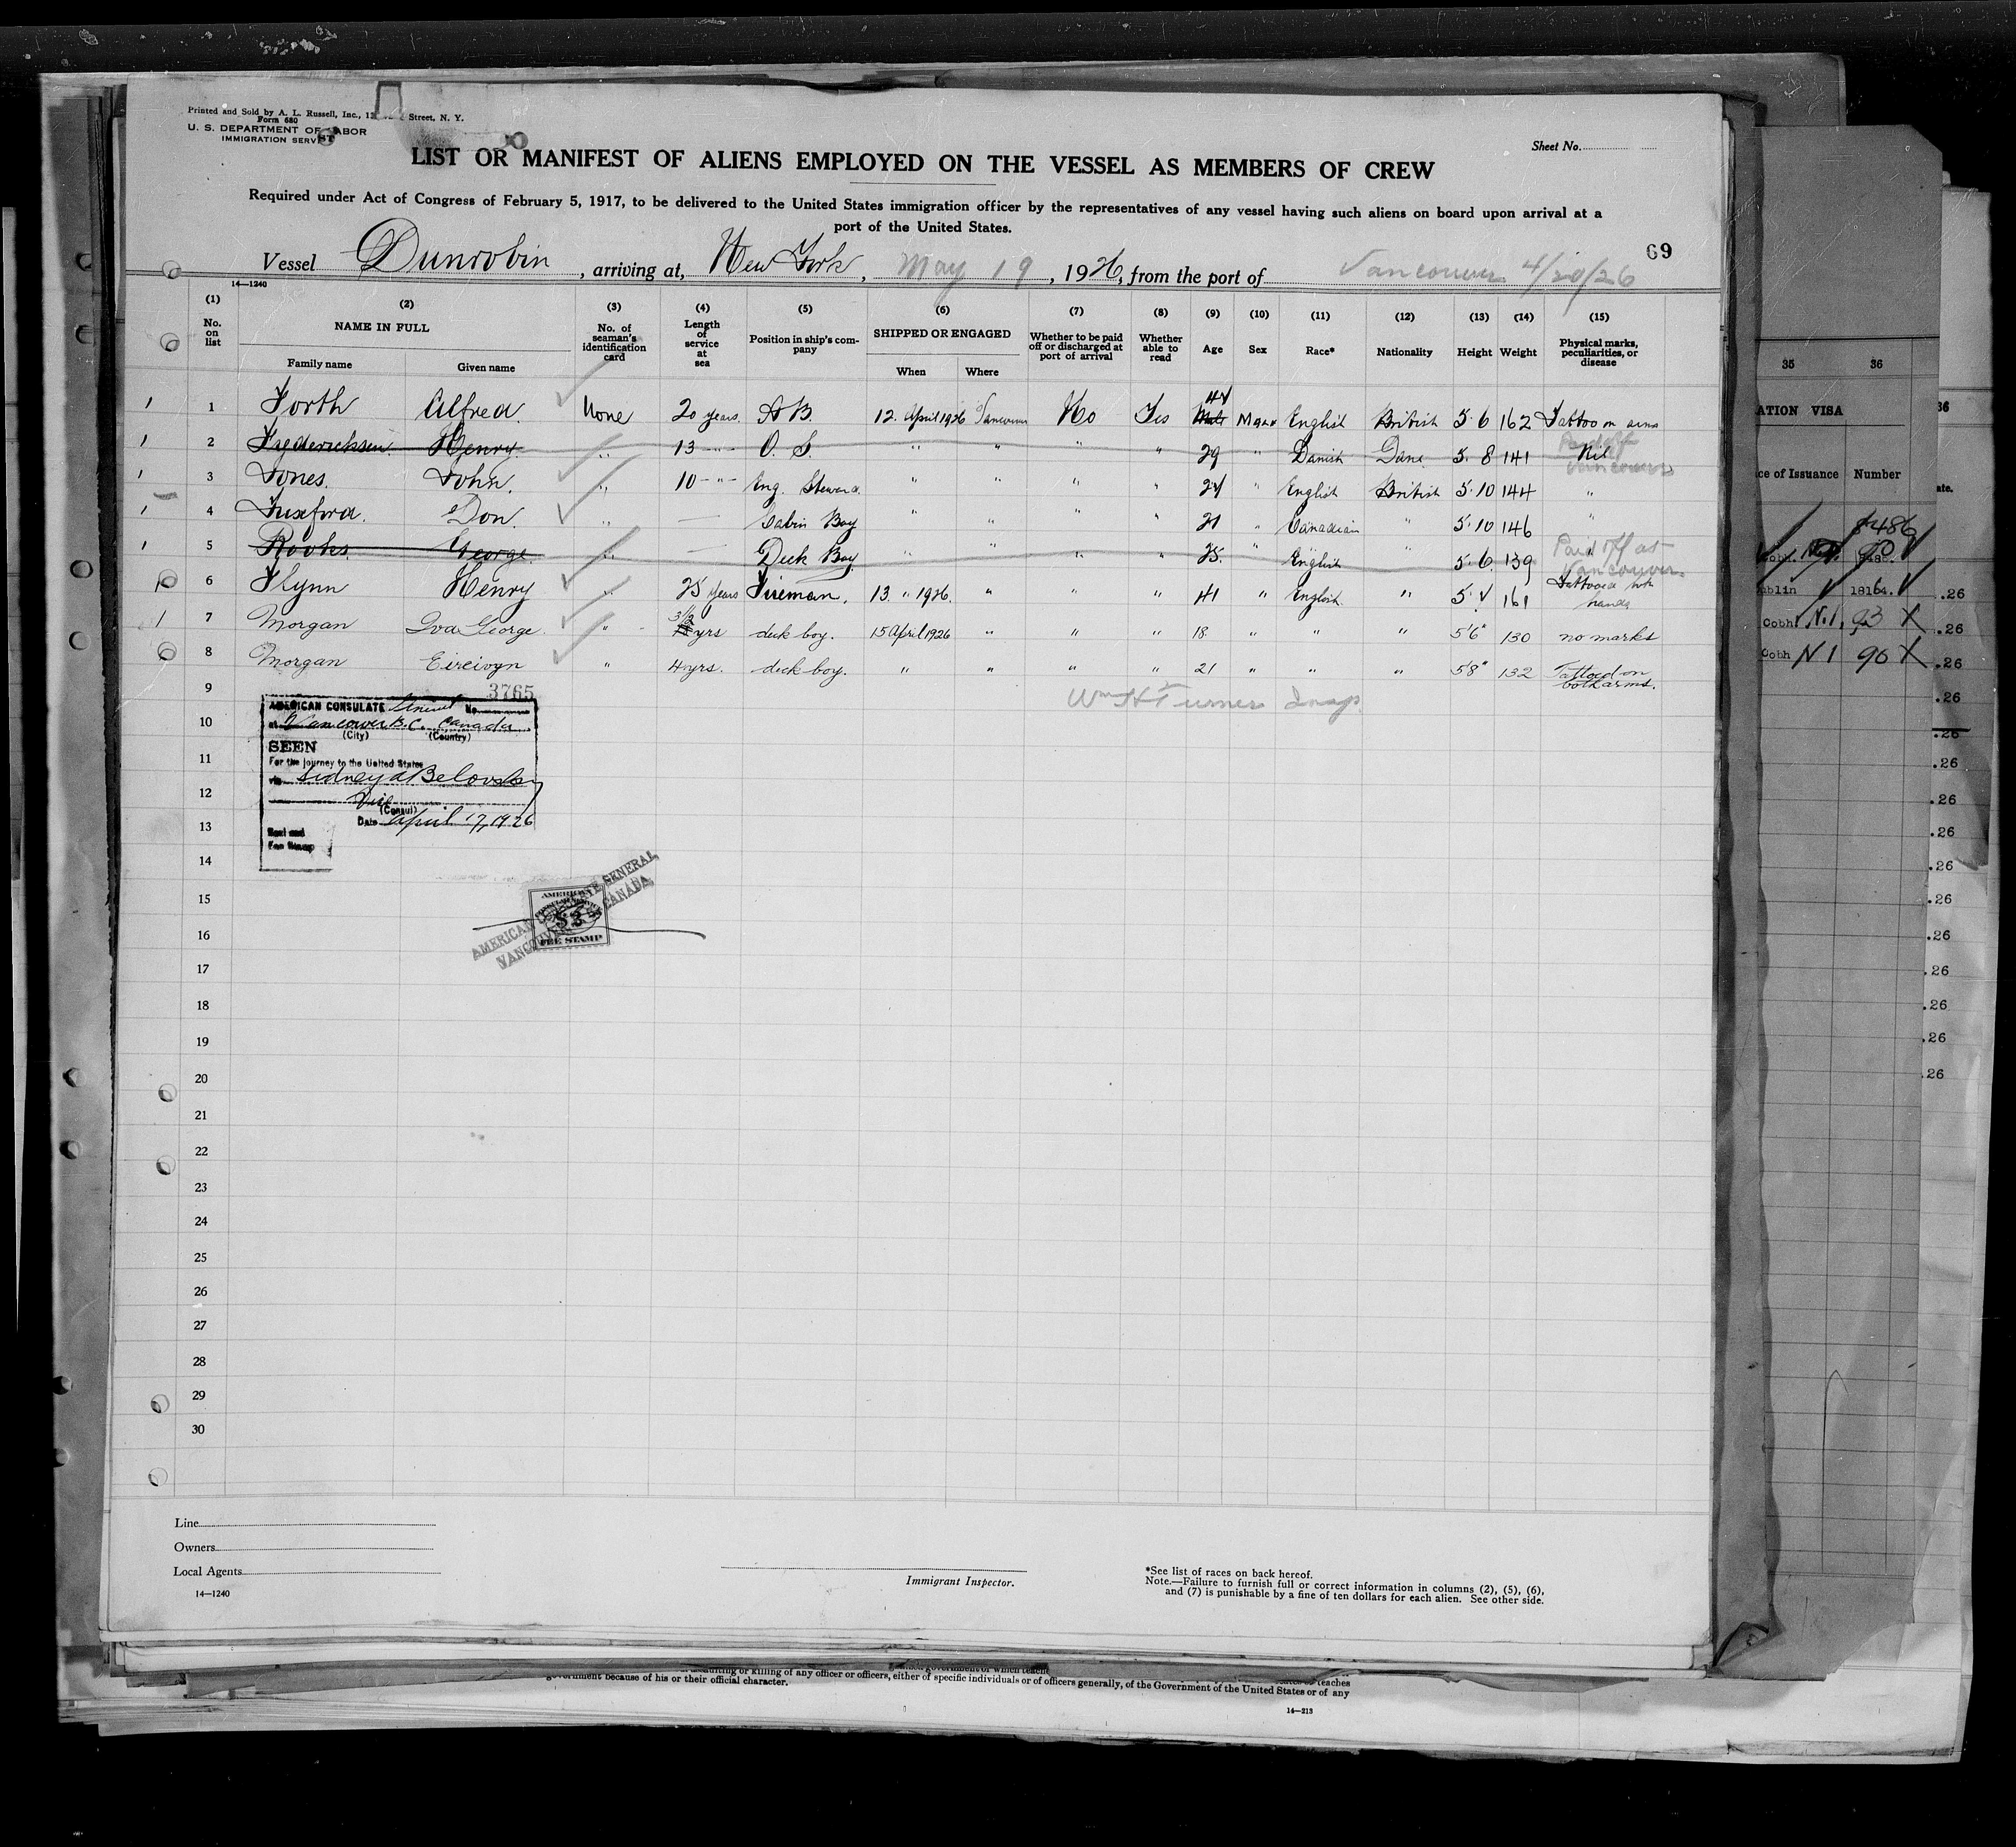 Printed and Sold by A. L. Russell, Inc., Street, N. Y.
Form 680
U. S. DEPARTMENT OF LABOR
IMMIGRATION SERVICE
Sheet No.
LIST OR MANIFEST OF ALIENS EMPLOYED ON THE VESSEL AS MEMBERS OF CREW
Required under Act of Congress of February 5, 1917, to be delivered to the United States immigration officer by the representatives of any vessel having such aliens on board upon arrival at a
port of the United States.
69
Vessel Dunrobin, arriving at, New York, May 19, 1926, from the port of Vancouver 4/20/26
14—1240
(1) (2) (3) (4) (5) (6) (7) (8) (9) (10) (11) (12) (13) (14) (15)
No. on list NAME IN FULL Family name Given name No. of seaman's identification card Length of service at sea Position in ship's company SHIPPED OR ENGAGED When Where Whether to be paid off or discharged at port of arrival Whether able to read Age Sex Race* Nationality Height Weight Physical marks, peculiarities, or disease
1 1 Forth Alfred None 20 years A B. 12 April 1926 Vancouver No Yes 44 Male English British 5 6 162 Tattoo on arms
1 2 Fredericksen Henry " 13 " O. S. " " " " 29 " Danish Dane 5. 8 141 Nil Paid off Vancouver
1 3 Jones John " 10 " Eng. Steward " " " " 24 " English British 5.10 144 "
1 4 Don. " — Cabin Boy " " " " 21 " Canadian " 5.10 146 "
1 5 Rooks George " — Deck Boy " " " " 25. " English " 5.6. 139 " Paid off at Vancouver
6 Flynn Henry " 25 years Fireman. 13. " 1926. " " " 41 " English. " 5. 161 Tattooed both hands
1 7 Morgan Iva George. " 3½ yrs deck boy. 15 April 1926 " " " 18 " " " 5'6" 130 no marks
8 Morgan Eireivyn " 4 yrs. deck boy. " " " " 21 " " " 5'8" 132 Tattoed on both arms.
9
Wm H Turner Insp.
3765
AMERICAN CONSULATE General No.
at Vancouver B.C. Canada.
(City) (Country)
SEEN
For the journey to the United States
via Sidney A Belovsky
Vice
(Consul)
Date April 17, 1926
Seal and
Fee Stamp
10
11
12
13
14
AMERICAN CONSULATE GENERAL
VANCOUVER CANADA
AMERICAN
CONSULAR SERVICE
$2
FEE STAMP
15
16
17
18
19
20
21
22
23
24
25
26
27
28
29
30
Line
Owners
Local Agents
14—1240
Immigrant Inspector.
*See list of races on back hereof.
Note.—Failure to furnish full or correct information in columns (2), (5), (6),
and (7) is punishable by a fine of ten dollars for each alien. See other side.
35 36
ATION VISA
ce of Issuance Number
ate.
Cobh.
18164. .26
Cobh. N.1. 93 X .26
Cobh N 1 90 X .26
.26
.26
.26
.26
.26
.26
.26
.26
.26
.26
.26
.26
government because of his or their official character.
or killing of any officer or officers, either of specific individuals or of officers generally, of the Government of the United States or of any
14—213